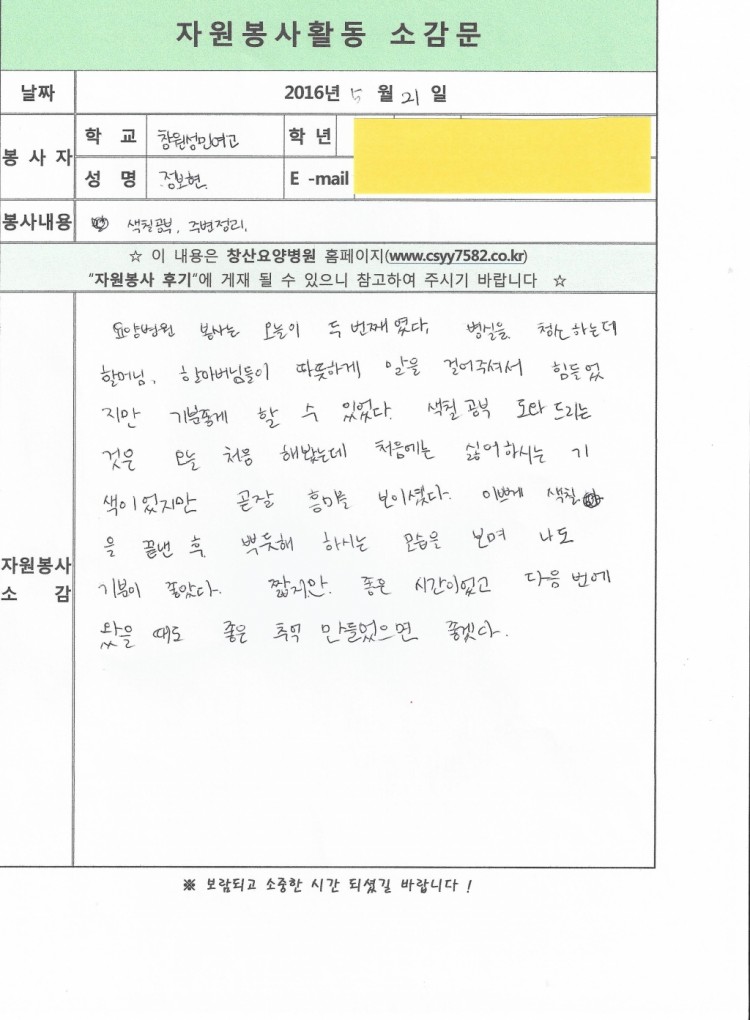 자원봉사활동 소감문
날짜 2016년 5 월 21 일
봉 사 자
학 교 창원성민여고 학 년
성 명 정보현 E -mail
봉사내용 색칠공부, 주변정리.
☆ 이 내용은 창산요양병원 홈페이지(www.csyy7582.co.kr)
"자원봉사 후기"에 게재 될 수 있으니 참고하여 주시기 바랍니다 ☆
자원봉사
소 감
요양병원 봉사는 오늘이 두 번째였다. 병실을 청소하는데
할머님, 할아버님들이 따뜻하게 말을 걸어주셔서 힘들었
지만 기분좋게 할 수 있었다. 색칠 공부 도와 드리는
것은 오늘 처음 해봤는데 처음에는 싫어하시는 기
색이었지만 곧잘 흥미를 보이셨다. 이쁘게 색칠
을 끝낸 후 뿌듯해 하시는 모습을 보며 나도
기분이 좋았다. 짧지만. 좋은 시간이었고 다음 번에
왔을 때도 좋은 추억 만들었으면 좋겠다.
※ 보람되고 소중한 시간 되셨길 바랍니다 !